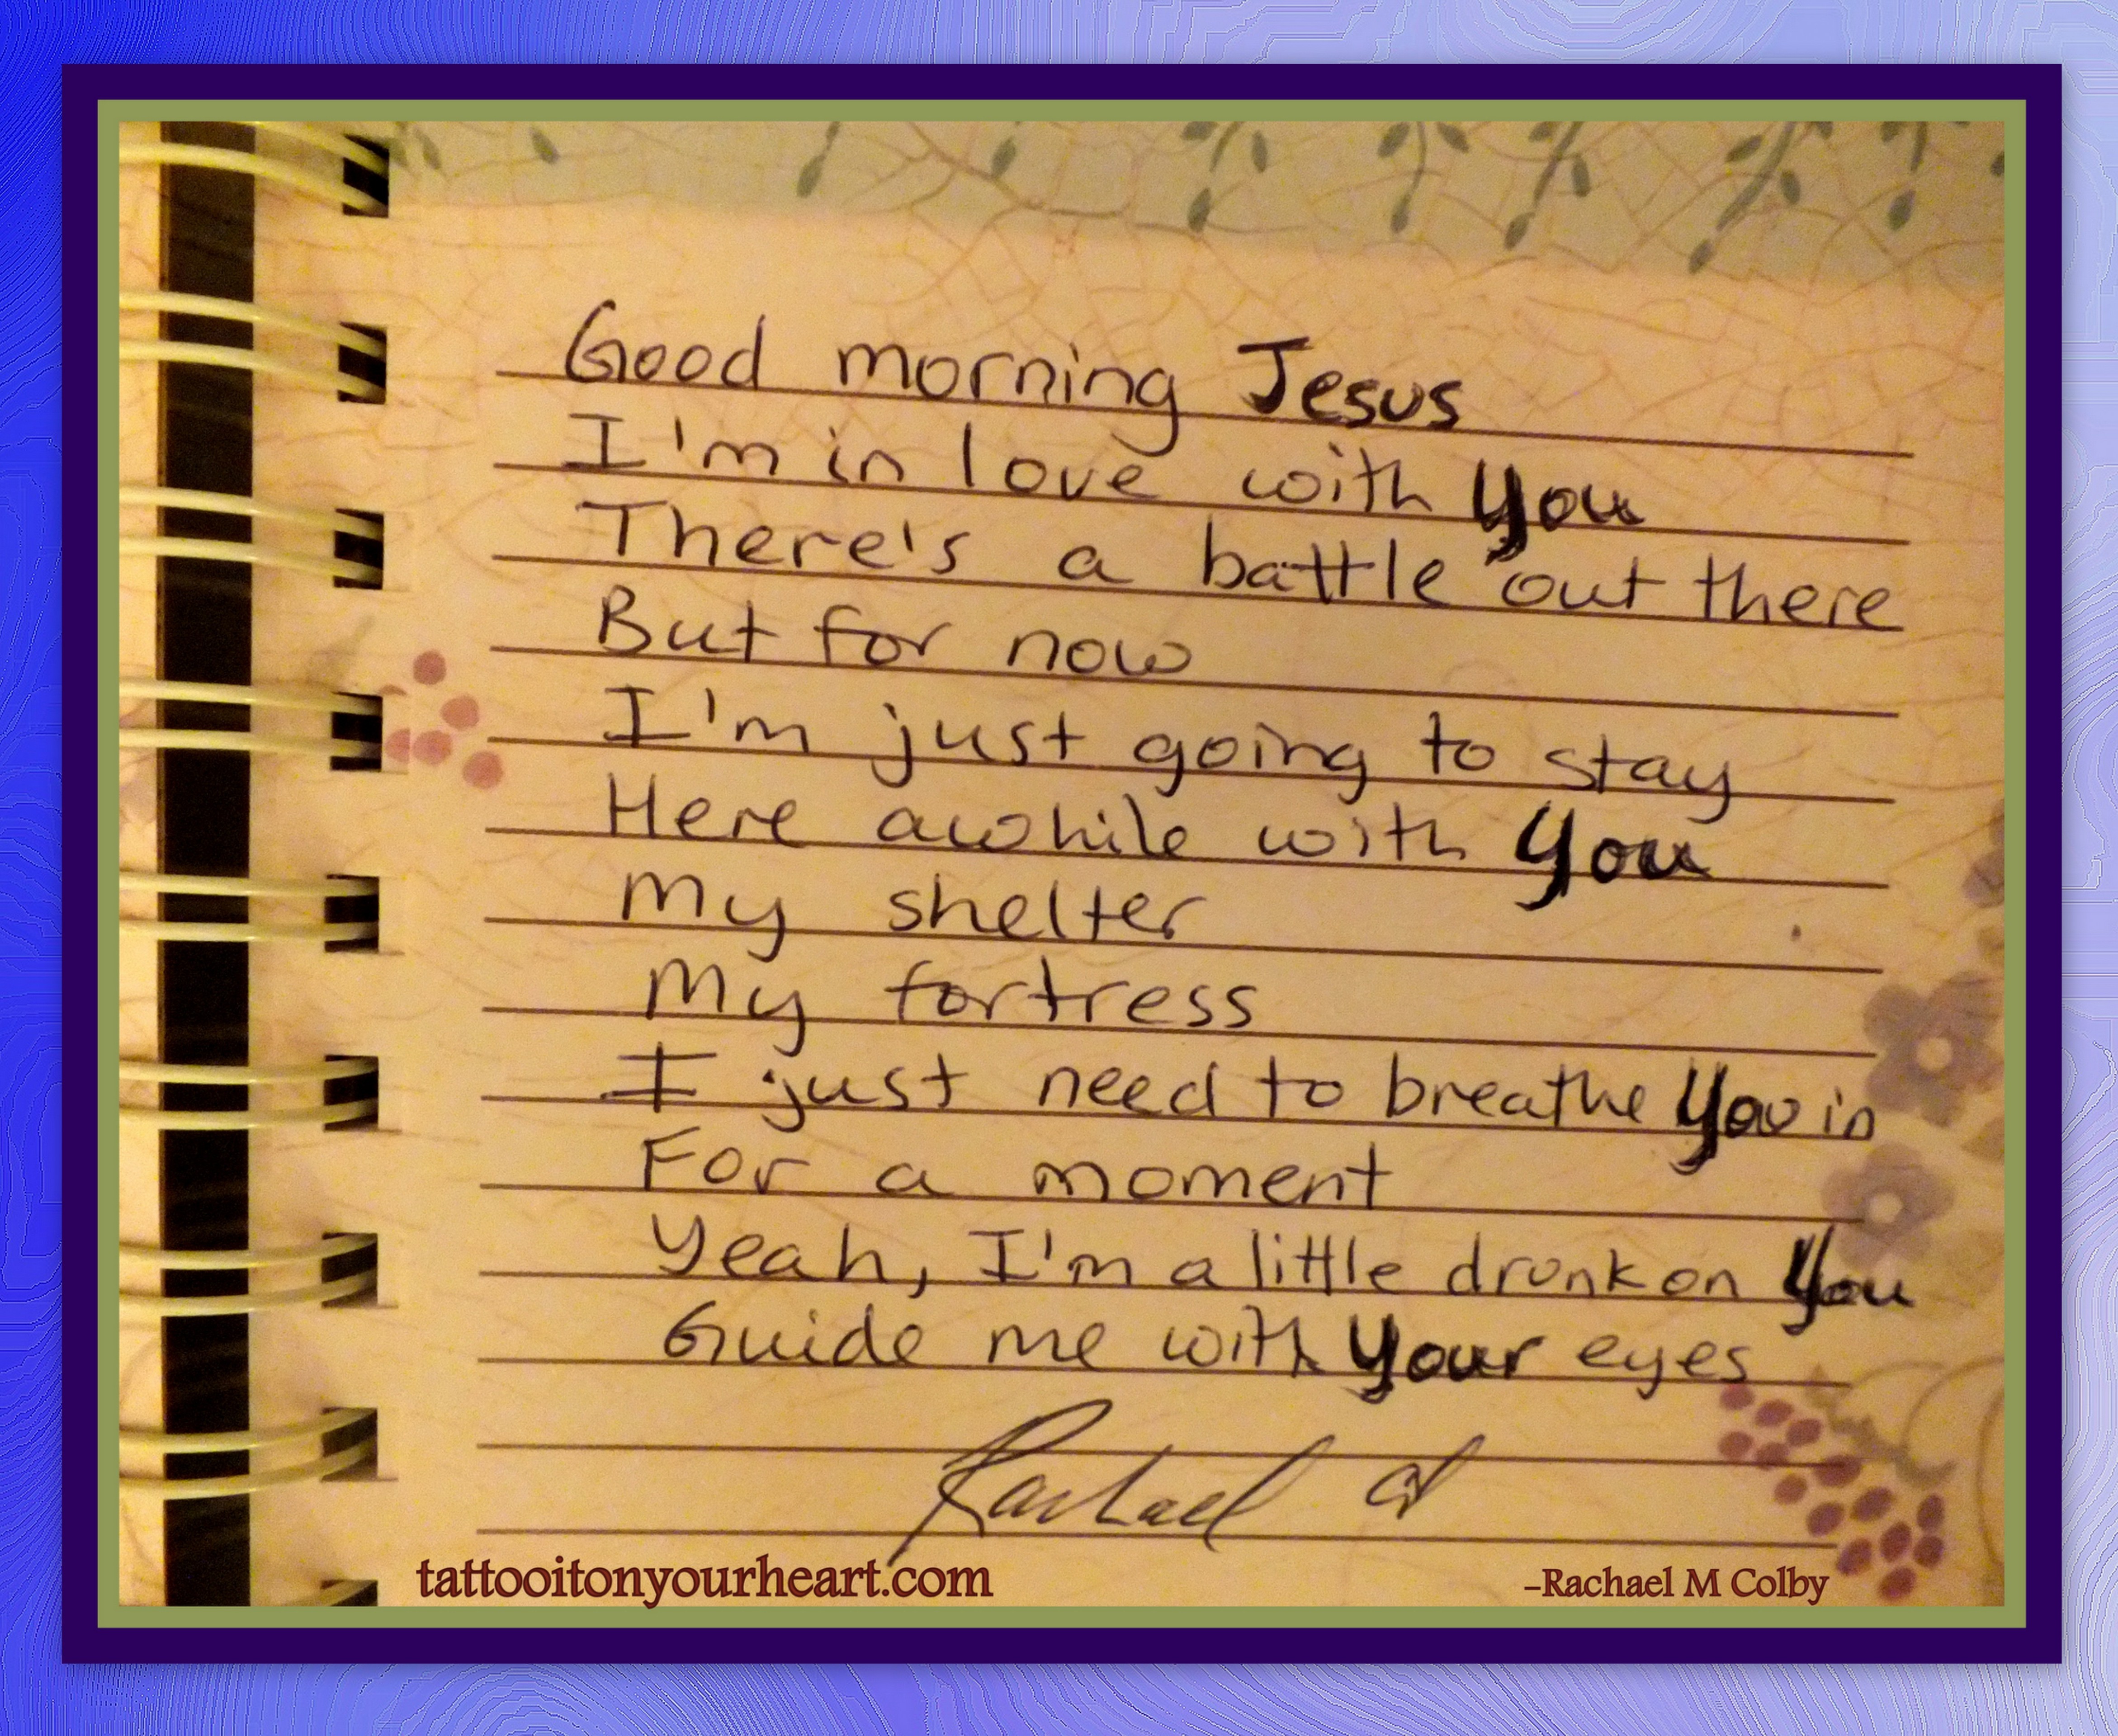 Good morning Jesus
I'm in love with You
There's a battle out there
But for now
I'm just going to stay
Here awhile with You
My shelter
My fortress
I just need to breathe You in
For a moment
Yeah, I'm a little drunk on You
Guide me with Your eyes
Rachael
tattooitonyourheart.com
-Rachael M Colby